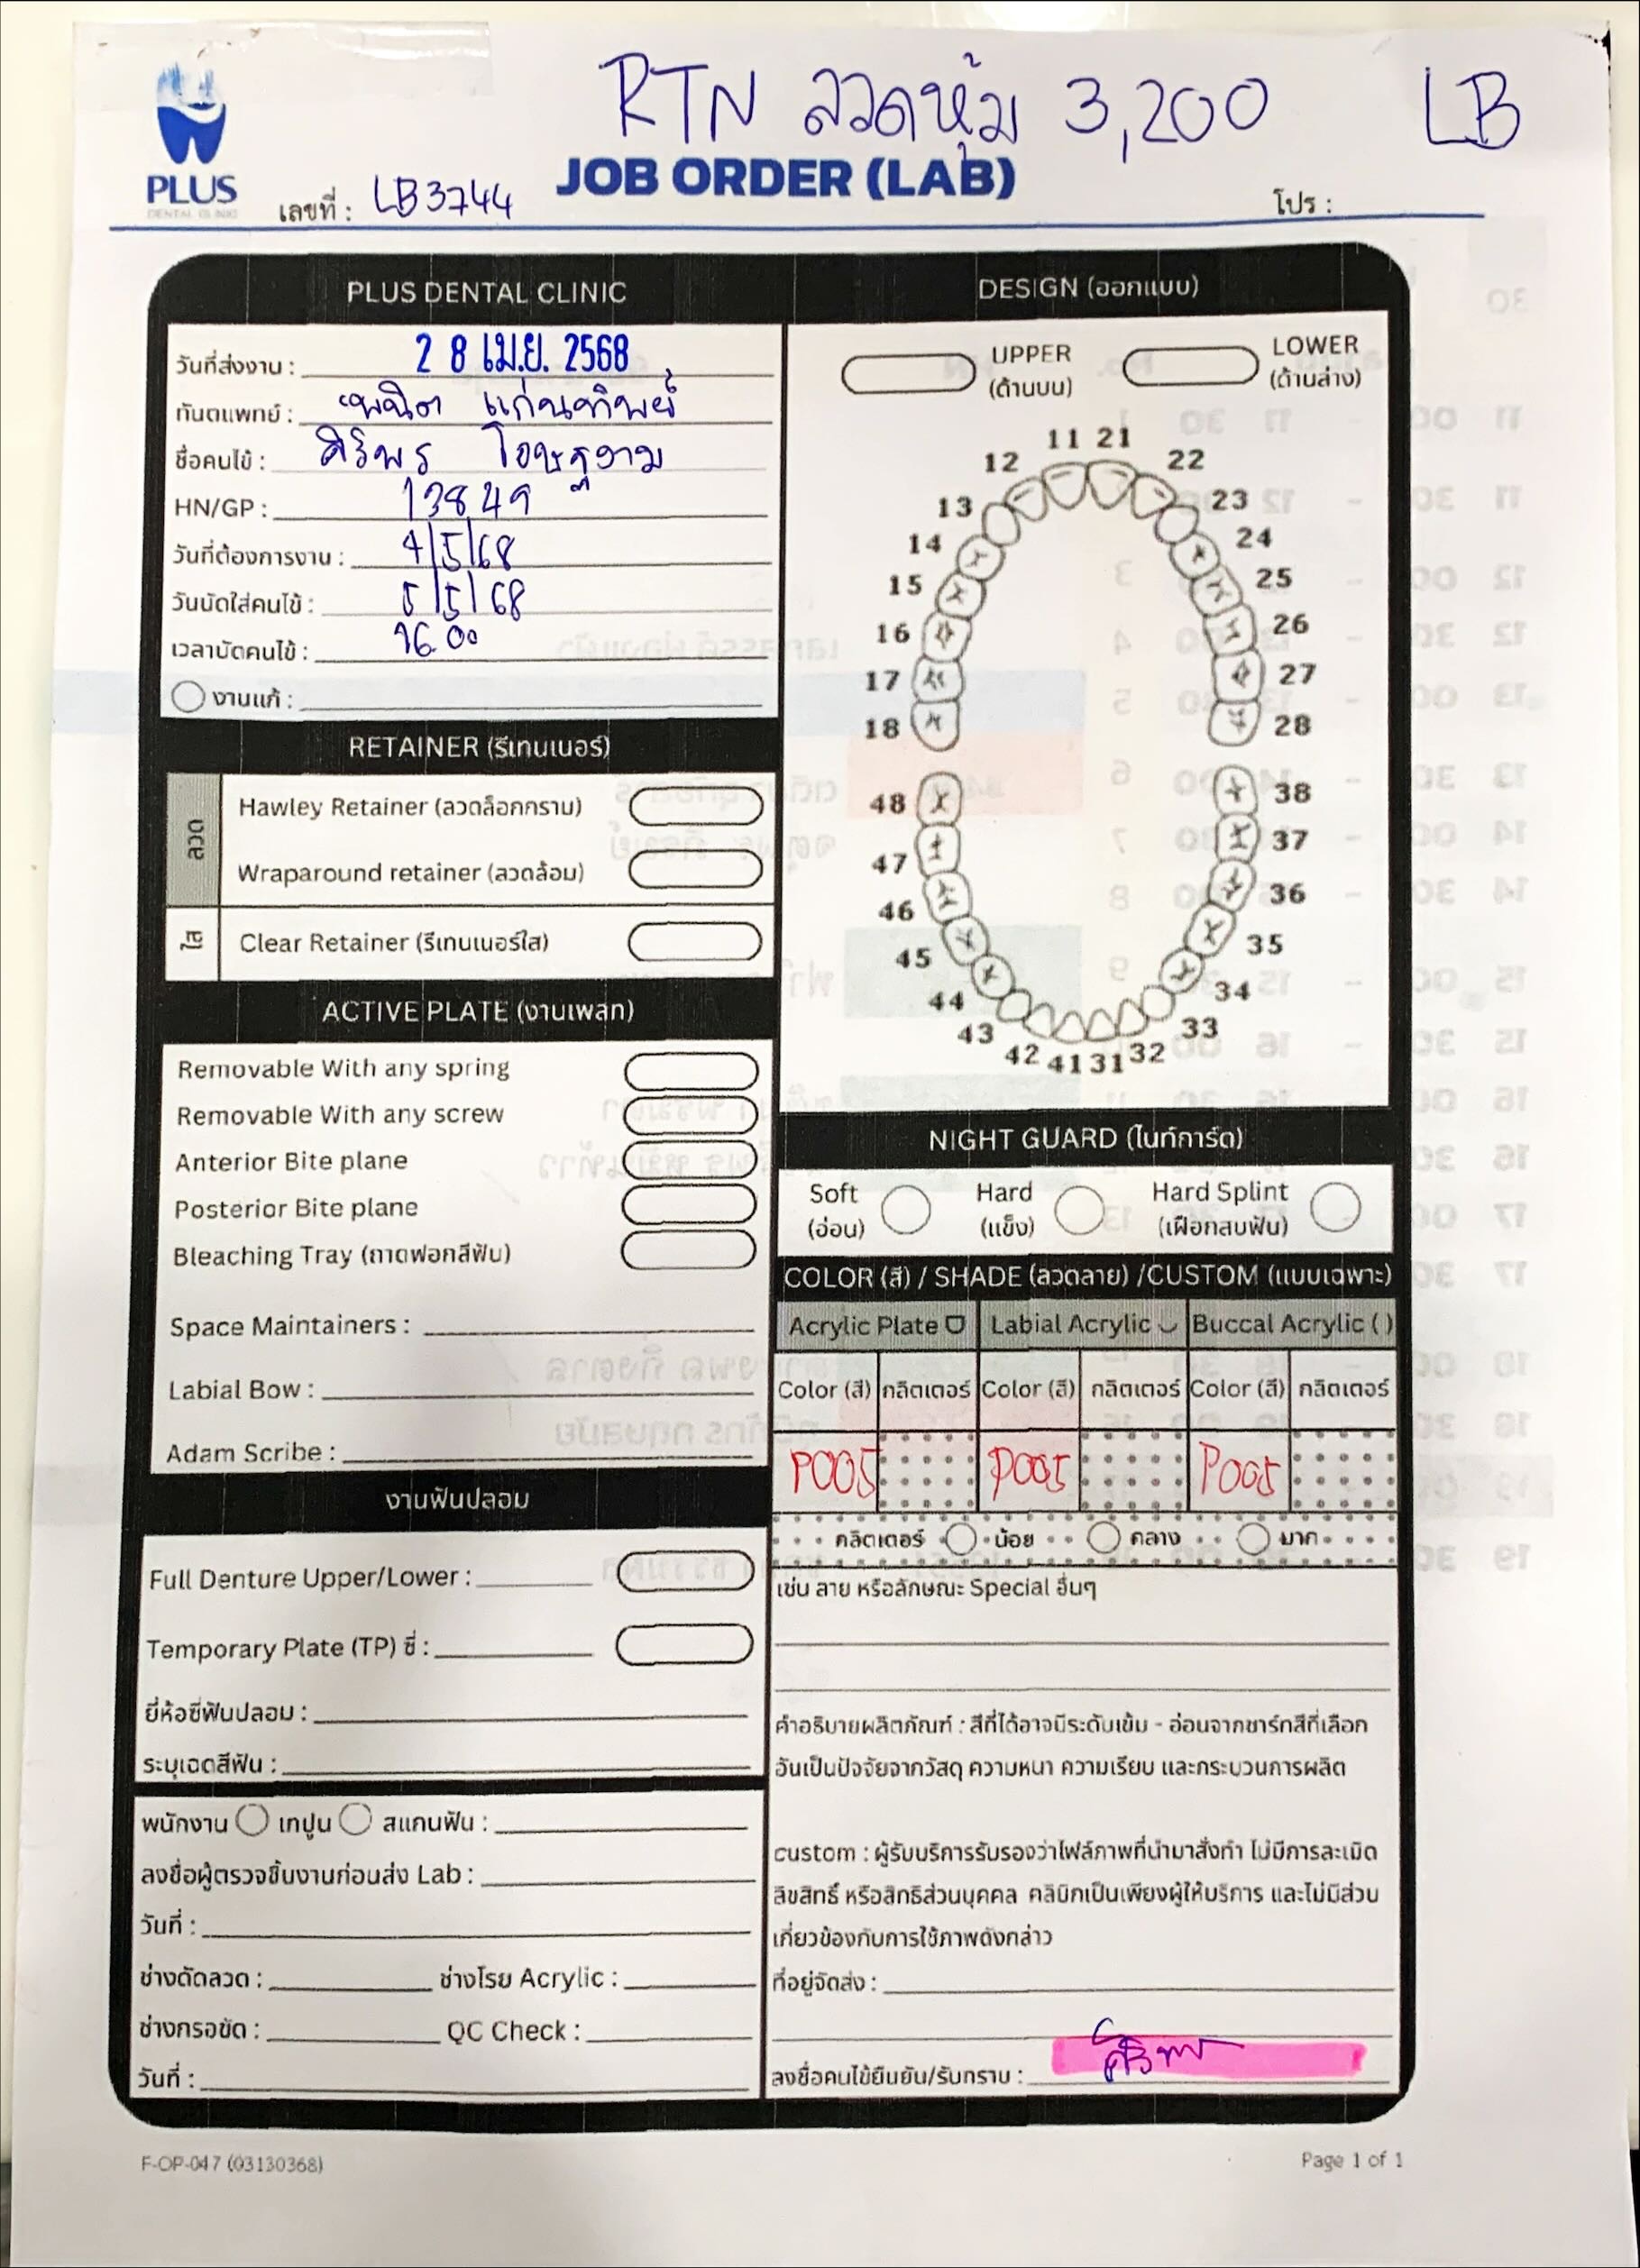 RTN ลวดหุ้ม 3,200 LB
PLUS
DENTAL CLINIC
เลขที่ : LB3744
JOB ORDER (LAB)
โปร :
PLUS DENTAL CLINIC
วันที่ส่งงาน : 28 เม.ย. 2568
ทันตแพทย์ : แก่นทิพย์
ชื่อคนไข้ : ศิริพร โอษฐงาม
HN/GP : 13849
วันที่ต้องการงาน : 4/5/68
วันนัดใส่คนไข้ : 5/5/68
เวลานัดคนไข้ : 16.00
งานแก้ :
RETAINER (รีเทนเนอร์)
ลวด
Hawley Retainer (ลวดล็อกกราม)
Wraparound retainer (ลวดล้อม)
ใส
Clear Retainer (รีเทนเนอร์ใส)
ACTIVE PLATE (งานเพลท)
Removable With any spring
Removable With any screw
Anterior Bite plane
Posterior Bite plane
Bleaching Tray (ถาดฟอกสีฟัน)
Space Maintainers :
Labial Bow :
Adam Scribe :
งานฟันปลอม
Full Denture Upper/Lower :
Temporary Plate (TP) ซี่ :
ยี่ห้อซี่ฟันปลอม :
ระบุเฉดสีฟัน :
พนักงาน เทปูน สแกนฟัน :
ลงชื่อผู้ตรวจชิ้นงานก่อนส่ง Lab :
วันที่ :
ช่างดัดลวด : ช่างโรย Acrylic :
ช่างกรอขัด : QC Check :
วันที่ :
DESIGN (ออกแบบ)
UPPER
(ด้านบน)
LOWER
(ด้านล่าง)
11 21
12 22
13 23
14 24
15 25
16 26
17 27
18 28
48 38
47 37
46 36
45 35
44 34
43 33
42 41 31 32
NIGHT GUARD (ไนท์การ์ด)
Soft
(อ่อน)
Hard
(แข็ง)
Hard Splint
(เฝือกสบฟัน)
COLOR (สี) / SHADE (ลวดลาย) /CUSTOM (แบบเฉพาะ)
Acrylic Plate Labial Acrylic Buccal Acrylic ( )
Color (สี) กลิตเตอร์ Color (สี) กลิตเตอร์ Color (สี) กลิตเตอร์
P005 P005 P005
กลิตเตอร์ น้อย กลาง มาก
เช่น ลาย หรือลักษณะ Special อื่นๆ
คำอธิบายผลิตภัณฑ์ : สีที่ได้อาจมีระดับเข้ม - อ่อนจากชาร์ทสีที่เลือก
อันเป็นปัจจัยจากวัสดุ ความหนา ความเรียบ และกระบวนการผลิต
custom : ผู้รับบริการรับรองว่าไฟล์ภาพที่นำมาสั่งทำ ไม่มีการละเมิด
ลิขสิทธิ์ หรือสิทธิส่วนบุคคล คลินิกเป็นเพียงผู้ให้บริการ และไม่มีส่วน
เกี่ยวข้องกับการใช้ภาพดังกล่าว
ที่อยู่จัดส่ง :
ลงชื่อคนไข้ยืนยัน/รับทราบ : ศิริพร
F-OP-047 (03130368)
Page 1 of 1